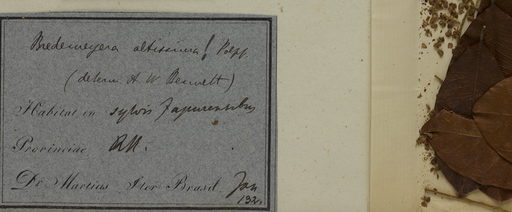 Bredemeyera altissima Poepp
(determ A W Bennett)
Habitat in sylvis Japurensibus
Provinciae R.N.
Dr Martius Iter Brasil. Jan